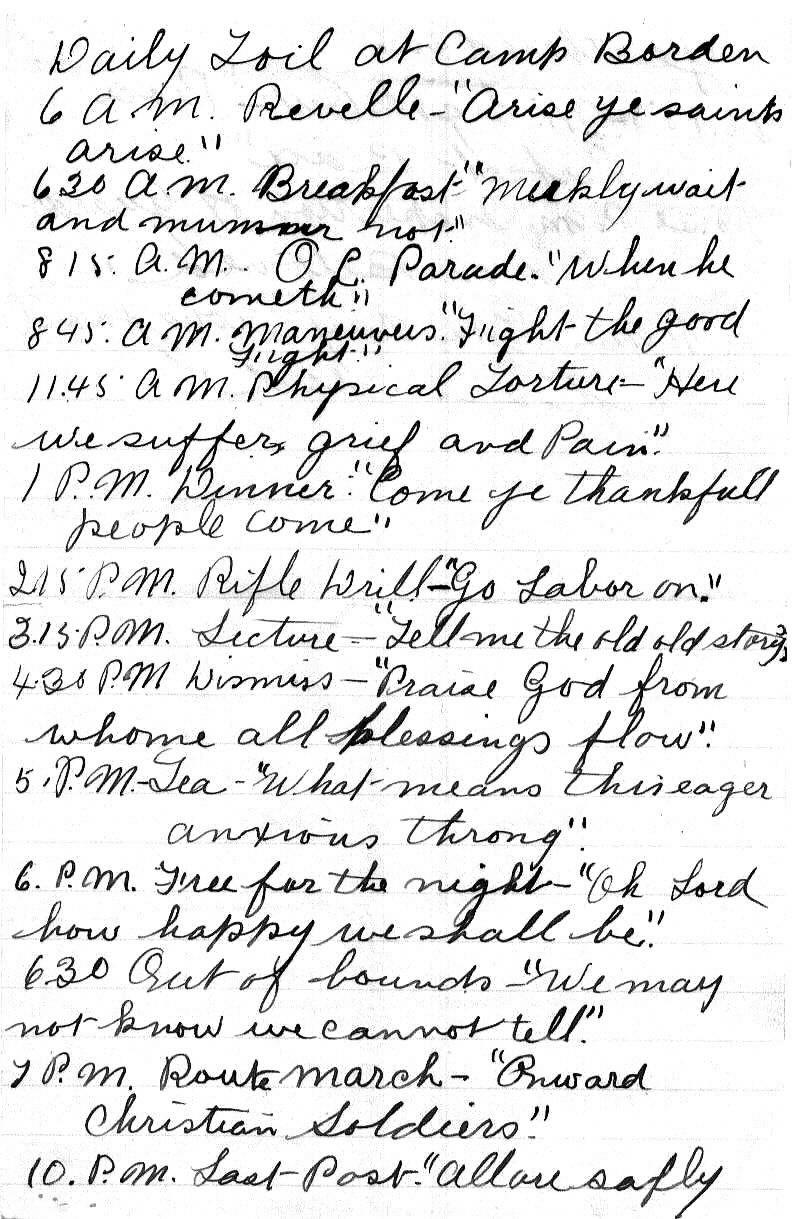 Daily Toil at Camp Borden
6 A M. Revelle - "Arise ye saints
arise"
6 30 A M. Breakfast - "Meekly wait
and mummur not."
8 15. A. M. O C. Parade. "When he
cometh"
8 45. A M. Maneuvers. "Fight the good
Fight"
11.45 A M. Physical Torture - "Here
we suffer, grief and Pain".
1 P. M. Dinner. "Come ye thankfull
people come"
2 15 P. M. Rifle Drill - "Go Labor on."
3.15 P.M. Lecture - "Tell me the old old story"
4.30 P M Dismiss - "Praise God from
whome all blessings flow".
5. P. M - Tea - "What means this eager
anxious throng".
6. P. M. Free for the night - "Oh Lord
how happy we shall be".
6 30 Out of bounds - "We may
not know we cannot tell."
7 P. M. Route march - "Onward
Christian Soldiers".
10. P. M. Last Post. "All are safly